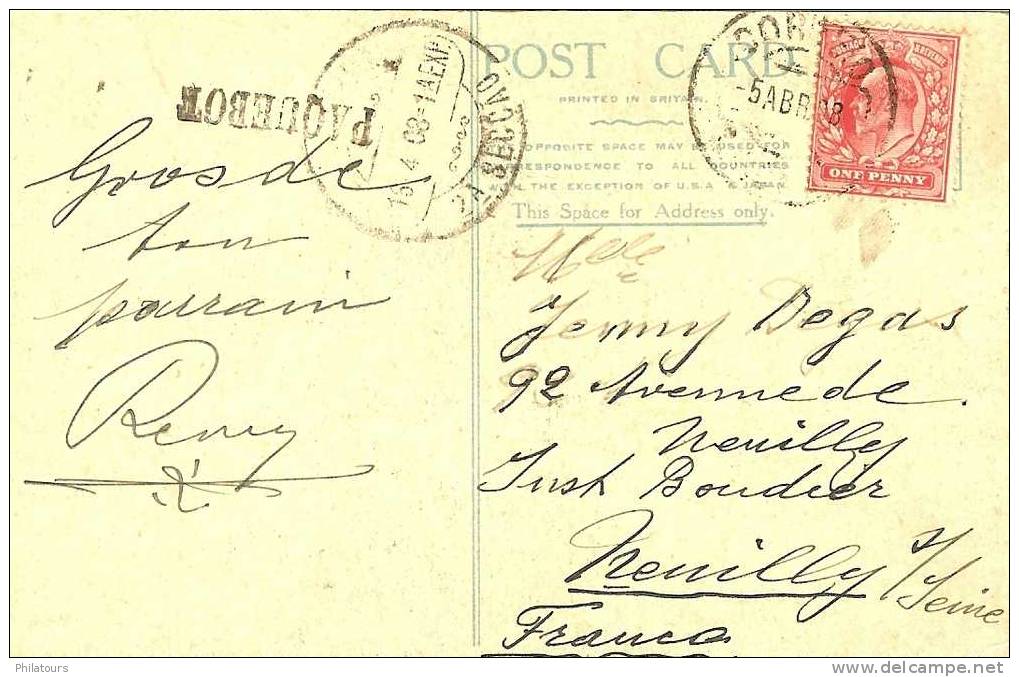 POST CARD
PRINTED IN BRITAIN.
OPPOSITE SPACE MAY BE USED FOR
CORRESPONDENCE TO ALL COUNTRIES
WITH THE EXCEPTION OF U.S.A & JAPAN.
This Space for Address only.
PAQUEBOT
SECCOVO
4 08-1A EXP
-5 ABR 08
POSTAGE REVENUE
ONE PENNY
Gros de
ton
parrain
Remy
Melle
Jenny Degas
92 Avenue de
Neuilly
Inst Boudier
Neuilly s/
Seine
France
Philatours
delcampe.net